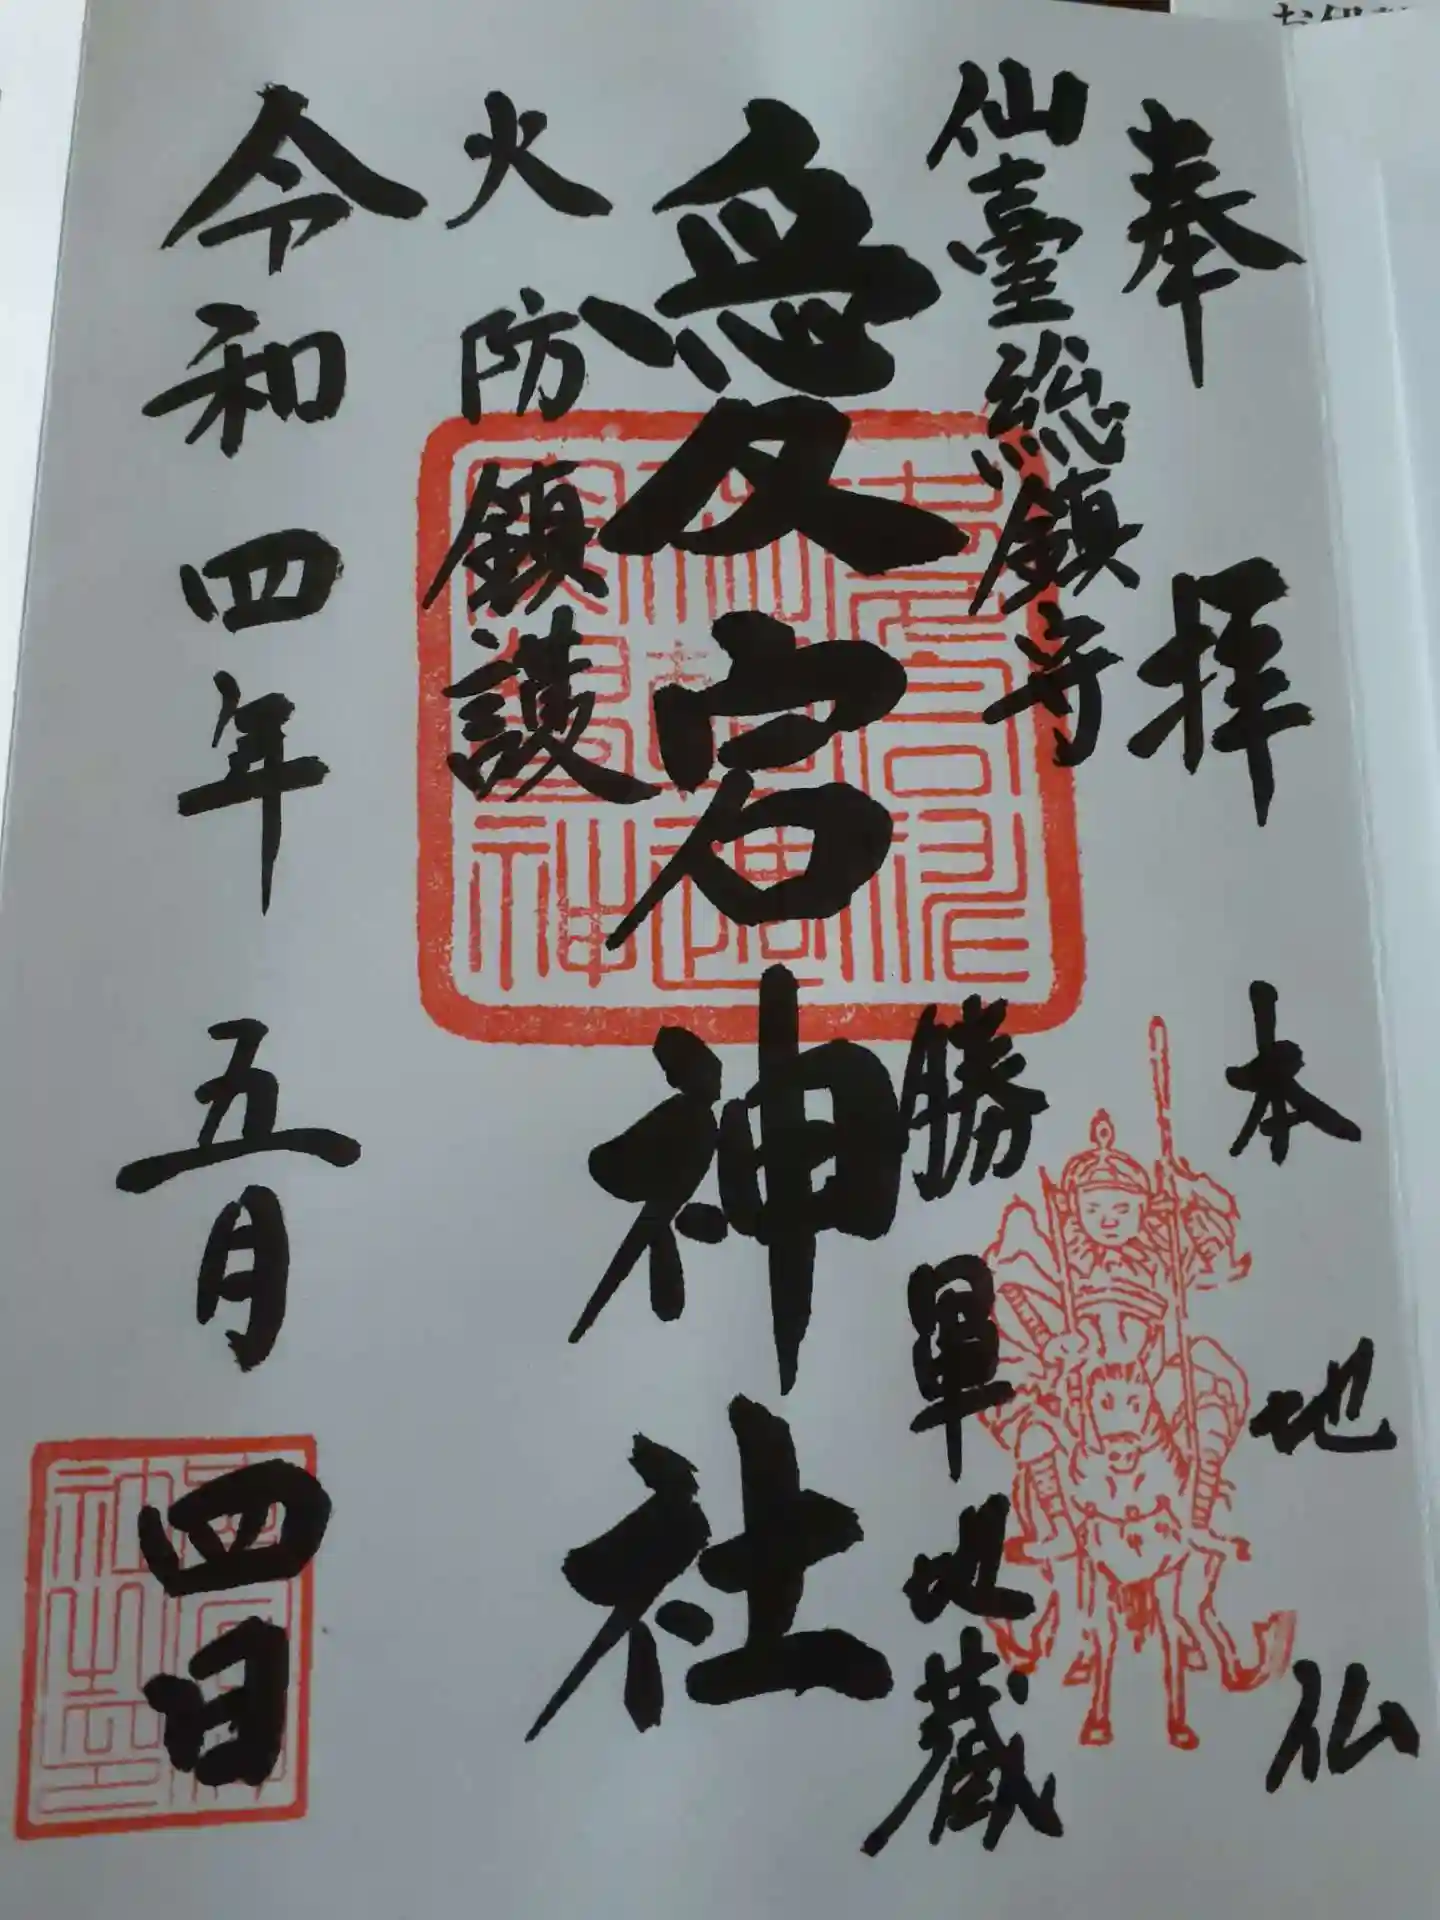 奉拝
本地仏
仙臺総鎮守
勝軍地蔵
愛宕神社
火防鎮護
令和四年五月四日